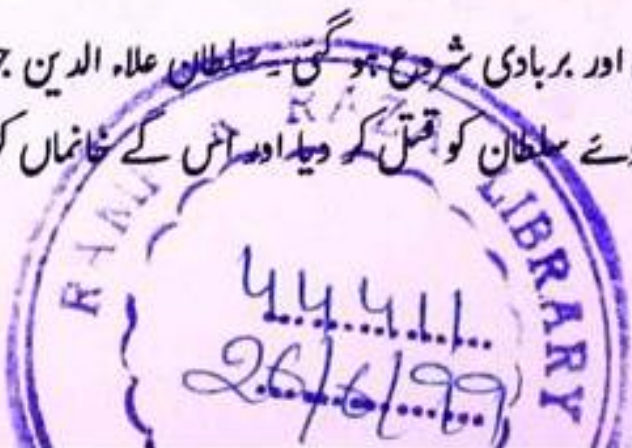 اور بربادی شروع ہو گئی ۔ سلطان علاء الدین
سلطان کو قتل کر دیا اور اس کے خانماں
RAZA LIBRARY
26/6/99